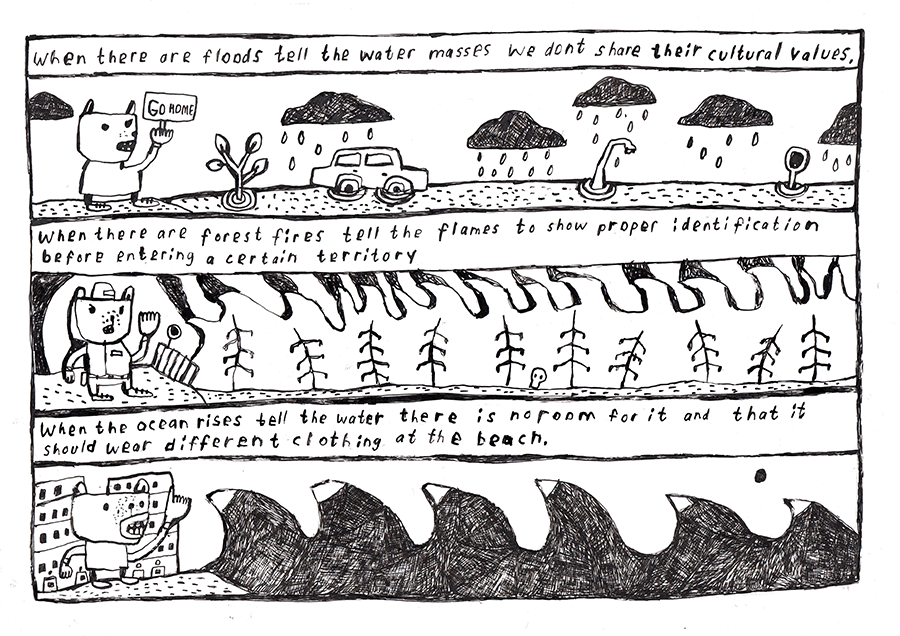 When there are floods tell the water masses we dont share their cultural values.
GO HOME
When there are forest fires tell the flames to show proper identification
before entering a certain territory
When the ocean rises tell the water there is no room for it and that it
should wear different clothing at the beach.